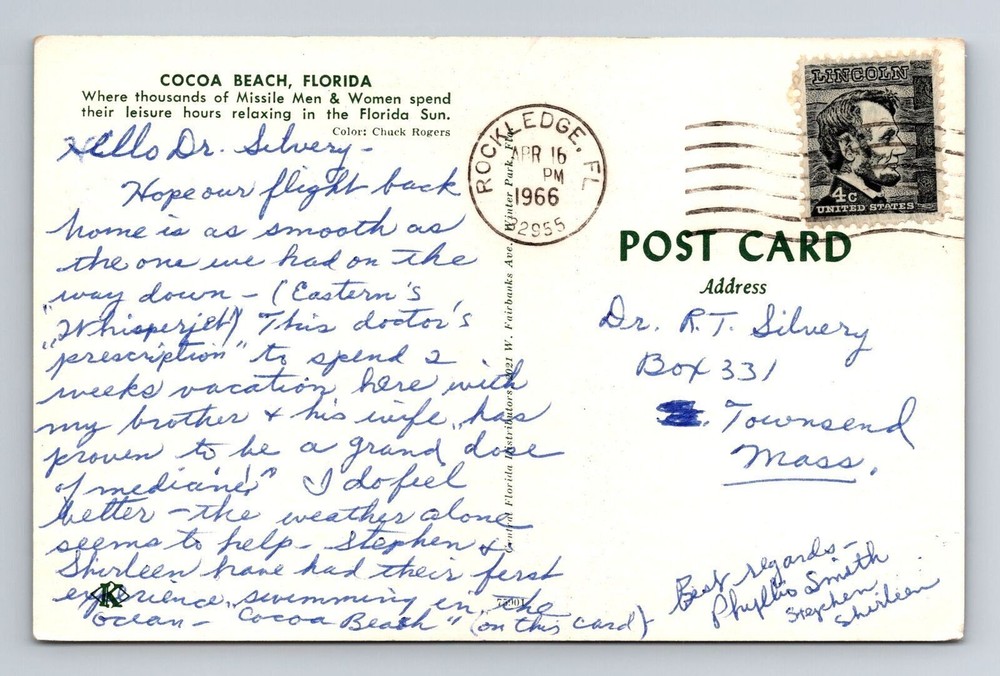 COCOA BEACH, FLORIDA
Where thousands of Missile Men & Women spend
their leisure hours relaxing in the Florida Sun.
Color: Chuck Rogers
Hello Dr. Silvery -
Hope our flight back
home is as smooth as
the one we had on the
way down - (Eastern's
"Whisperjet") This doctor's
"prescription" to spend 2
weeks vacation here with
my brother & his wife, has
proven to be a grand dose
of medicine!" I do feel
better - the weather alone
seems to help - Stephen &
Shirleen have had their first
experience, swimming in the
ocean - "Cocoa Beach" (on this card)
K
Central Florida Distributors, 2021 W. Fairbanks Ave., Winter Park, Fla.
ROCKLEDGE, FL
APR 16
PM
1966
32955
LINCOLN
4c
UNITED STATES
POST CARD
Address
Dr. R.T. Silvery
Box 331
Townsend
Mass.
Best regards -
Phyllis Smith
Stephen
Shirleen